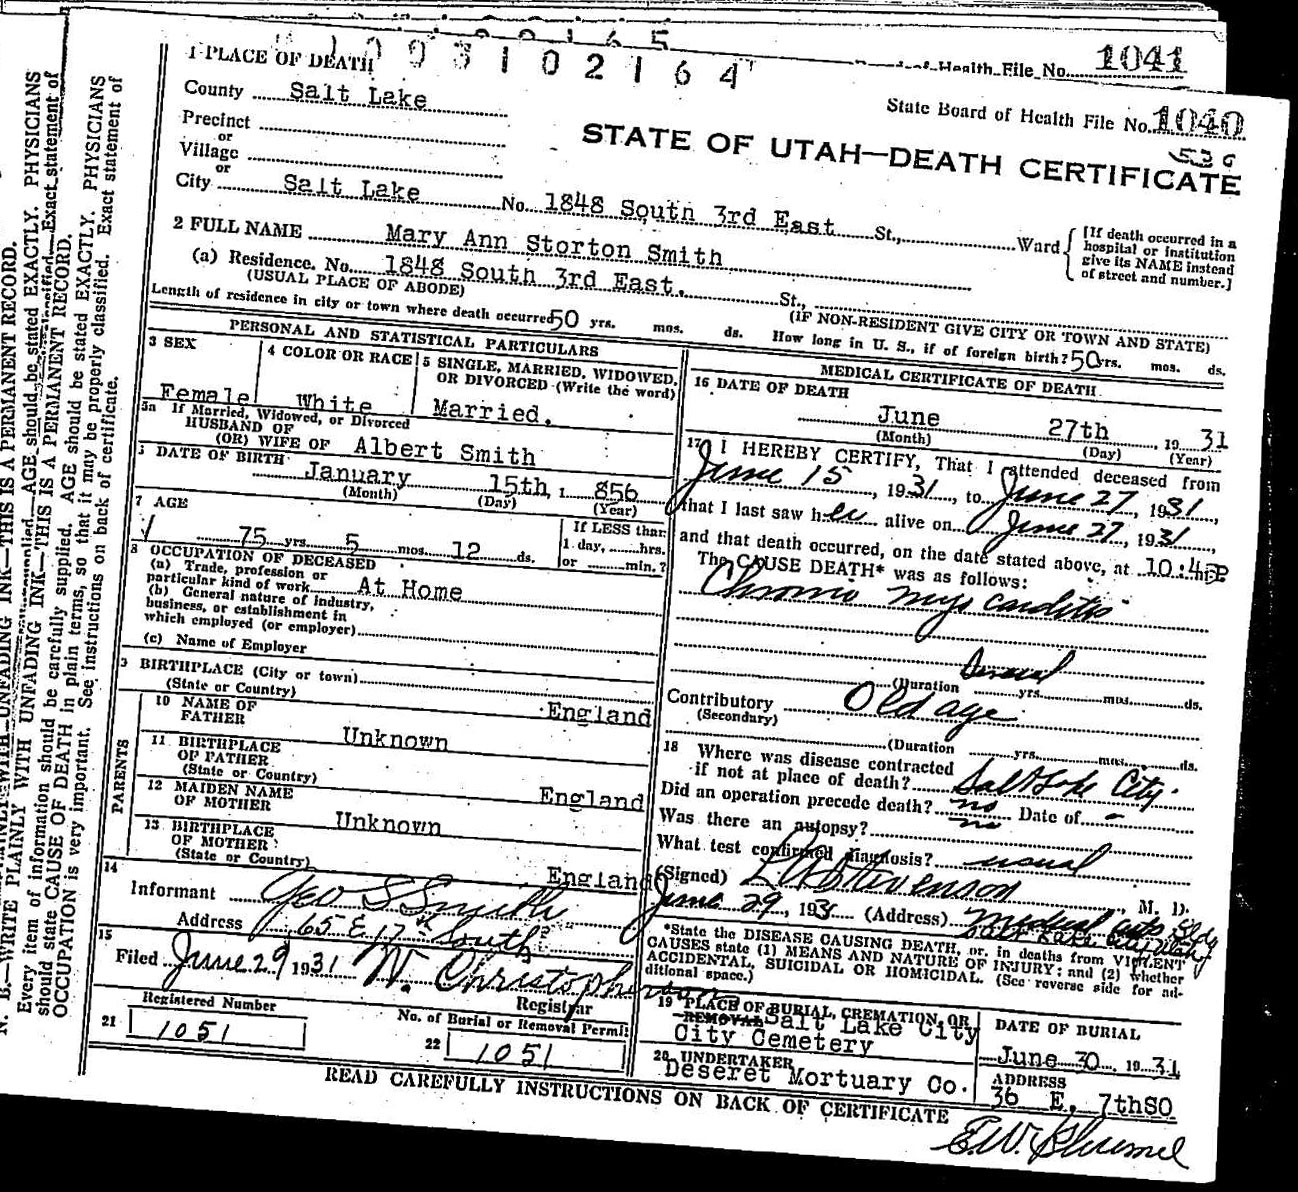 1041
of Health File No.
1 0 9 3 1 0 2 1 6 4
State Board of Health File No. 1040
536
STATE OF UTAH—DEATH CERTIFICATE
1 PLACE OF DEATH
County Salt Lake
Precinct
or
Village
or
City Salt Lake No. 1848 South 3rd East St., Ward
[If death occurred in a
hospital or institution
give its NAME instead
of street and number.]
2 FULL NAME Mary Ann Storton Smith
(a) Residence. No. 1848 South 3rd East. St.,
(USUAL PLACE OF ABODE) (IF NON-RESIDENT GIVE CITY OR TOWN AND STATE)
Length of residence in city or town where death occurred 50 yrs. mos. ds. How long in U. S., if of foreign birth? 50 yrs. mos. ds.
PERSONAL AND STATISTICAL PARTICULARS
3 SEX
Female
4 COLOR OR RACE
White
5 SINGLE, MARRIED, WIDOWED,
OR DIVORCED (Write the word)
Married.
5a If Married, Widowed, or Divorced
HUSBAND OF
(OR) WIFE OF Albert Smith
DATE OF BIRTH
January 15th, 1 856
(Month) (Day) (Year)
7 AGE
75 yrs. 5 mos. 12 ds.
If LESS than
1 day, hrs.
or min.?
8 OCCUPATION OF DECEASED
(a) Trade, profession or
particular kind of work At Home
(b) General nature of industry,
business, or establishment in
which employed (or employer)
(c) Name of Employer
9 BIRTHPLACE (City or town)
(State or Country) England
PARENTS
10 NAME OF
FATHER Unknown
11 BIRTHPLACE
OF FATHER
(State or Country) England
12 MAIDEN NAME
OF MOTHER Unknown
13 BIRTHPLACE
OF MOTHER
(State or Country) England
14
Informant Geo S Smith
Address 65 E 17th South
15
Filed June 29 1931 W. Christopherson
Registrar
Registered Number
21 1051
No. of Burial or Removal Permit
22 1051
MEDICAL CERTIFICATE OF DEATH
16 DATE OF DEATH
June 27th, 19 31
(Month) (Day) (Year)
17 I HEREBY CERTIFY, That I attended deceased from
June 15, 1931, to June 27, 1931,
that I last saw her alive on June 27, 1931,
and that death occurred, on the date stated above, at 10:4 P
The CAUSE DEATH* was as follows:
Chronic myocarditis
Several
(Duration yrs. mos. ds.
Contributory Old age
(Secondary)
(Duration yrs. mos. ds.
18 Where was disease contracted
if not at place of death? Salt Lake City.
Did an operation precede death? no Date of -
Was there an autopsy? no
What test confirmed diagnosis? usual
(Signed) Stevenson, M. D.
June 29, 1931 (Address) Medical Arts Bldg
Salt Lake City Utah
*State the DISEASE CAUSING DEATH, or, in deaths from VIOLENT
CAUSES state (1) MEANS AND NATURE OF INJURY; and (2) whether
ACCIDENTAL, SUICIDAL OR HOMICIDAL. (See reverse side for ad-
ditional space.)
19 PLACE OF BURIAL, CREMATION, OR
REMOVAL Salt Lake City
City Cemetery
DATE OF BURIAL
June 30, 19 31
20 UNDERTAKER
Deseret Mortuary Co.
ADDRESS
36 E. 7thSO
READ CAREFULLY INSTRUCTIONS ON BACK OF CERTIFICATE
E.W.
N. B.—WRITE PLAINLY WITH UNFADING INK—THIS IS A PERMANENT RECORD.
Every item of information should be carefully supplied. AGE should be stated EXACTLY. PHYSICIANS
should state CAUSE OF DEATH in plain terms, so that it may be properly classified. Exact statement of
OCCUPATION is very important. See instructions on back of certificate.